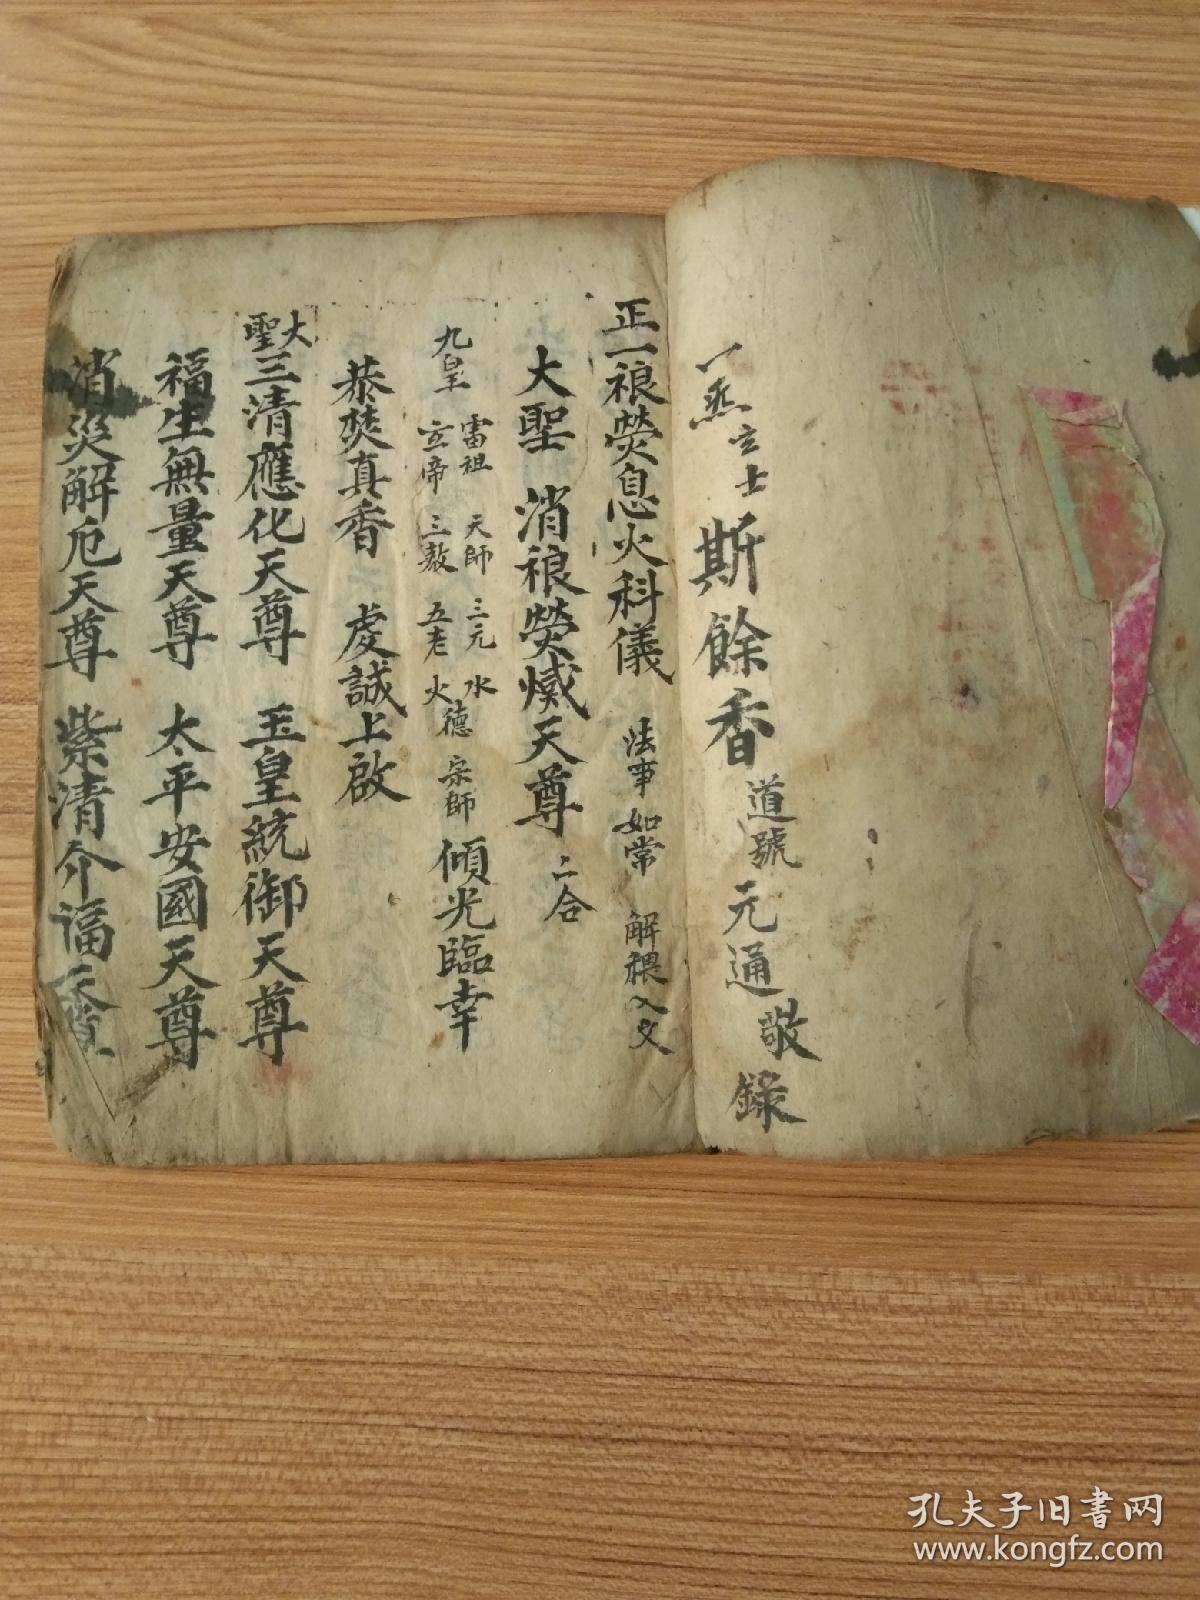 一炁玄士斯餘香道號元通敬錄
正一禳熒息火科儀 法事如常 解穢入文
大聖 消禳熒惑天尊 二合
九皇 雷祖 天師 三元 水
玄帝 三教 五老 火德 宗師 傾光臨幸
恭焚真香 虔誠上啟
大聖三清應化天尊 玉皇統御天尊
福生無量天尊 太平安國天尊
消災解厄天尊 紫清介福天尊
孔夫子旧书网
www.kongfz.com